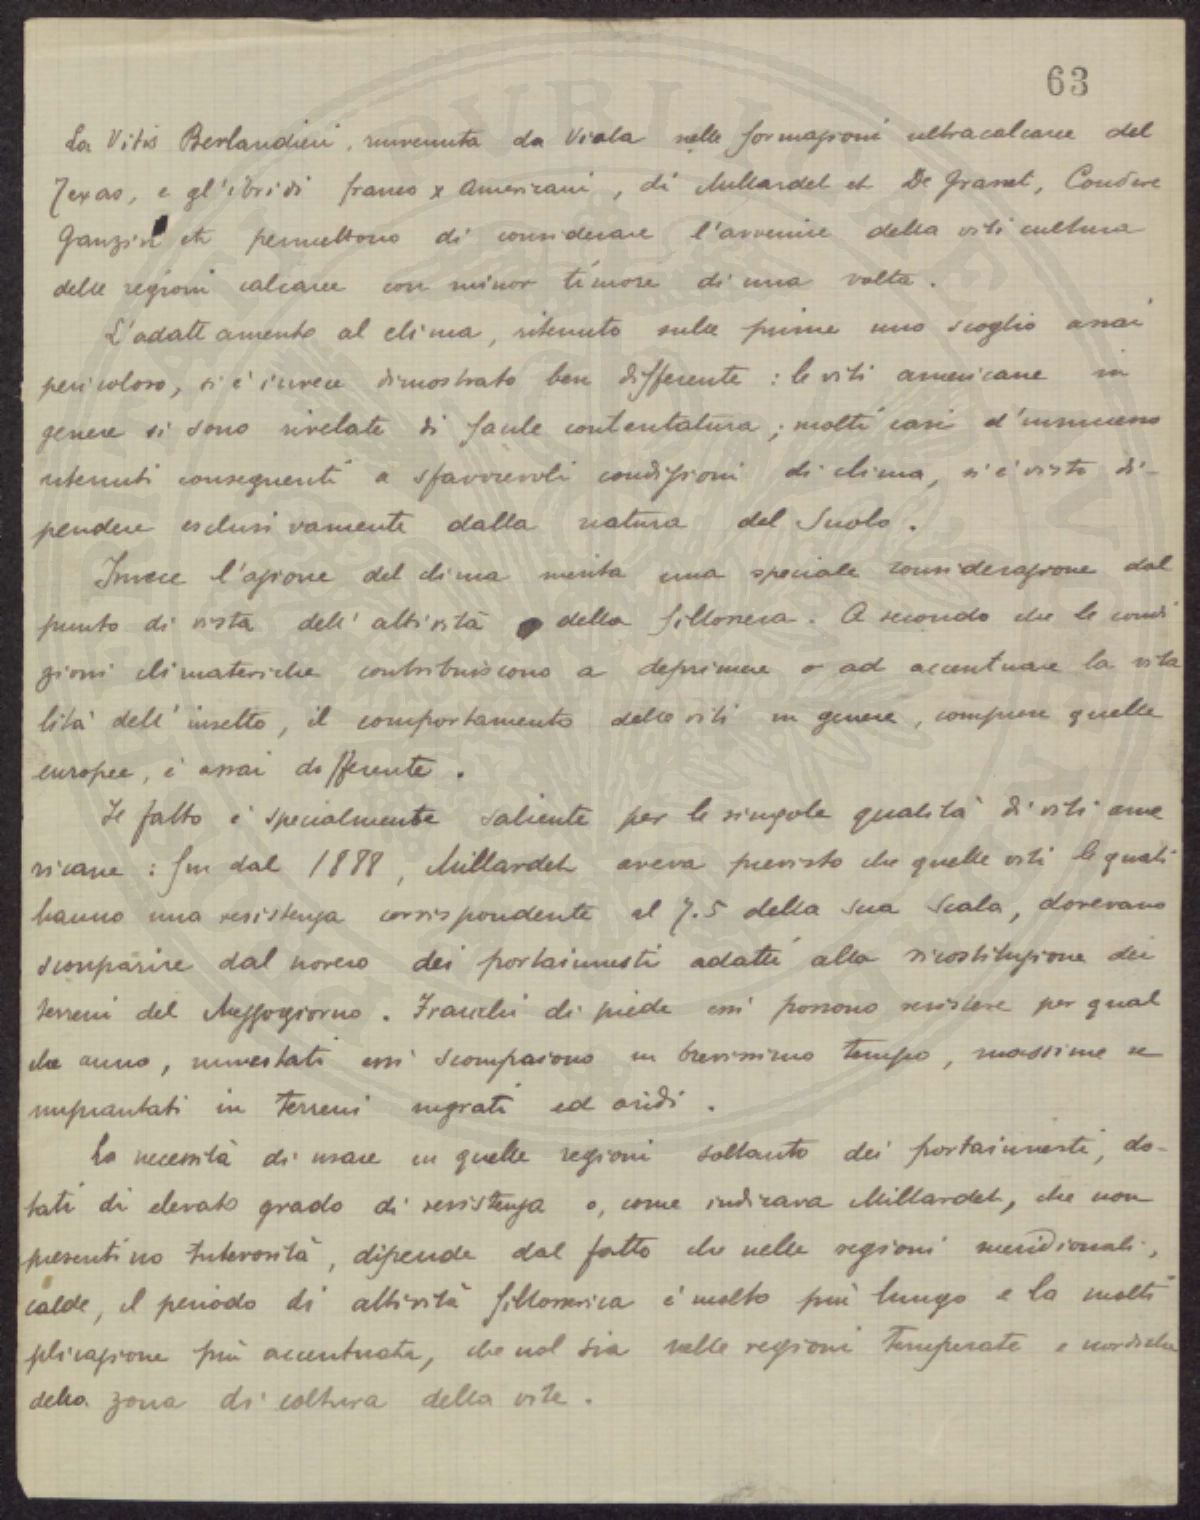 63
La Vitis Berlandieri, rinvenuta da Viala nelle formazioni ultracalcaree del
Texas, e gl'ibridi franco x Americani, di Millardet et De Grasset, Couderc
Ganzin etc permettono di considerare l'avvenire della viticultura
delle regioni calcaree con minor timore di una volta.
L'adattamento al clima, ritenuto sulle prime uno scoglio assai
pericoloso, si è invece dimostrato ben differente: le viti americane in
genere si sono rivelate di facile contentatura; molti casi d'insuccesso
ritenuti conseguenti a sfavorevoli condizioni di clima, si è visto di-
pendere esclusivamente dalla natura del Suolo.
Invece l'azione del clima merita una speciale considerazione dal
punto di vista dell'attività della fillossera. A secondo che le condi
zioni climateriche contribuiscono a deprimere o ad accentuare la vita
lità dell'insetto, il comportamento delle viti in genere, comprese quelle
europee, è assai differente.
Il fatto è specialmente saliente per le singole qualità di viti ame
ricane: fin dal 1888, Millardet aveva previsto che quelle viti le quali
hanno una resistenza corrispondente al 7.5 della sua Scala, dovevano
scomparire dal novero dei portainnesti adatti alla ricostituzione dei
terreni del Mezzogiorno. Franchi di piede essi possono resistere per qual
che anno, innestati essi scompaiono in brevissimo tempo, massime se
impiantati in terreni ingrati ed aridi.
La necessità di usare in quelle regioni soltanto dei portainnesti, do-
tati di elevato grado di resistenza o, come indicava Millardet, che non
presentino tuberosità, dipende dal fatto che nelle regioni meridionali,
calde, il periodo di attività fillosserica è molto più lungo e la molti
plicazione più accentuata, che nol sia nelle regioni temperate e nordiche
della zona di coltura della vite.